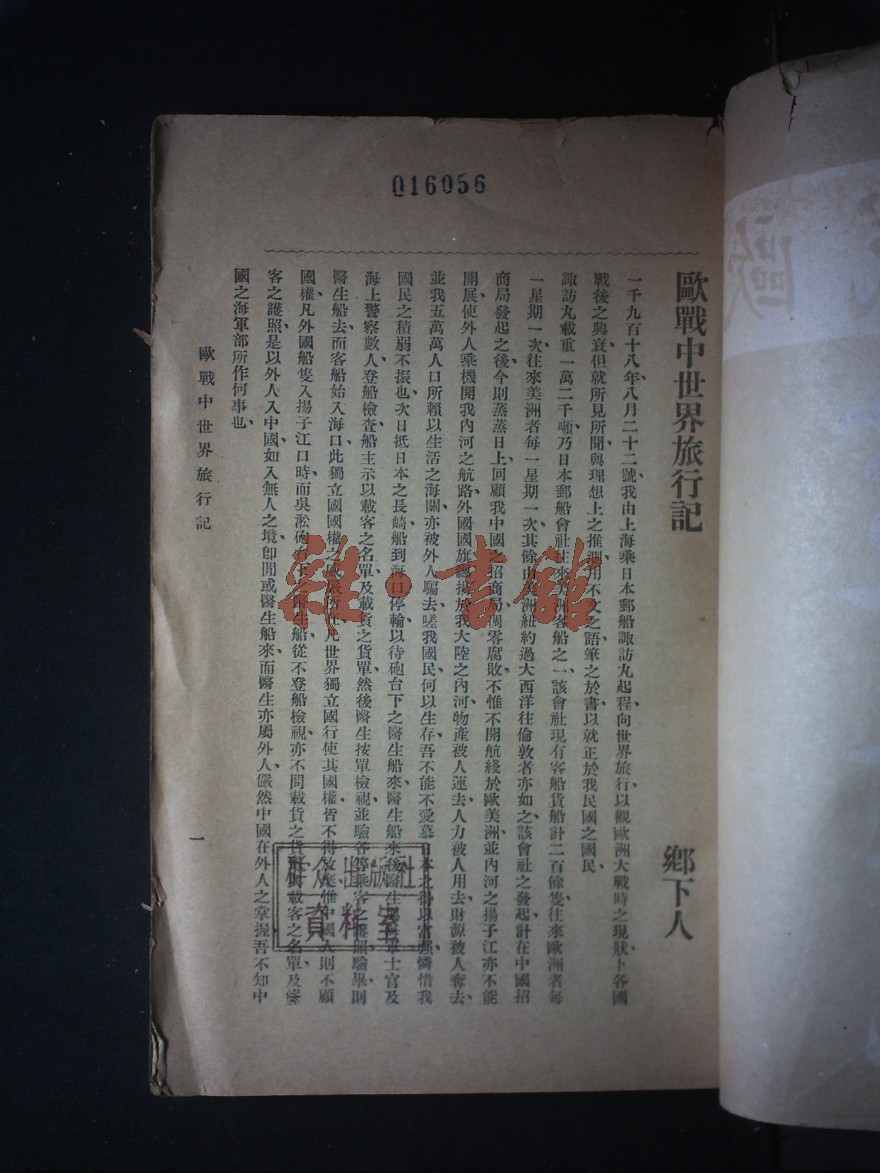 016056
歐戰中世界旅行記
鄉下人
一千九百十八年八月二十二號、我由上海乘日本郵船諏訪丸起程、向世界旅行、以觀歐洲大戰時之現狀、卜各國
戰後之興衰、但就所見所聞、與理想上之推測、用不文之語、筆之於書、以就正於我民國之國民、
諏訪丸載重一萬二千噸、乃日本郵船會社往來歐洲客船之一、該會社現有客船貨船計二百餘隻、往來歐洲者每
一星期一次、往來美洲者每一星期一次、其餘由美洲紐約過大西洋往倫敦者亦如之、該會社之發起、計在中國招
商局發起之後、今則蒸蒸日上、回顧我中國之招商局、凋零腐敗、不惟不開航綫於歐美洲、並內河之揚子江亦不能
開展、使外人乘機開我內河之航路、外國國旗 放我大陸之內河、物產被人運去、人力被人用去、財源被人奪去、
並我五萬萬人口所賴以生活之海關、亦被外人騙去、嗟我國民、何以生存、吾不能不愛慕日本之得以富強、憐惜我
國民之積弱不振也、次日抵日本之長崎、船到海口停輪、以待砲台下之醫生船來、醫生船來後、醫生 軍士官及
海上警察數人、登船檢查、船主示以載客之名單、及載貨之貨單、然後醫生按單檢視、並驗各等乘客之護照、驗畢、則
醫生船去、而客船始入海口、此獨立國國權之 凡世界獨立國行使其國權、皆不得 惟中國人則不顧
國權、凡外國船隻入揚子江口時、而吳淞砲台下之醫生船、從不登船檢視、亦不問載貨之貨 載客之名單、及
客之護照、是以外人入中國、如入無人之境、卽間或醫生船來、而醫生亦屬外人、儼然中國在外人之掌握、吾不知中
國之海軍部所作何事也、
歐戰中世界旅行記
一
雜·書館
群众出版社
資料室